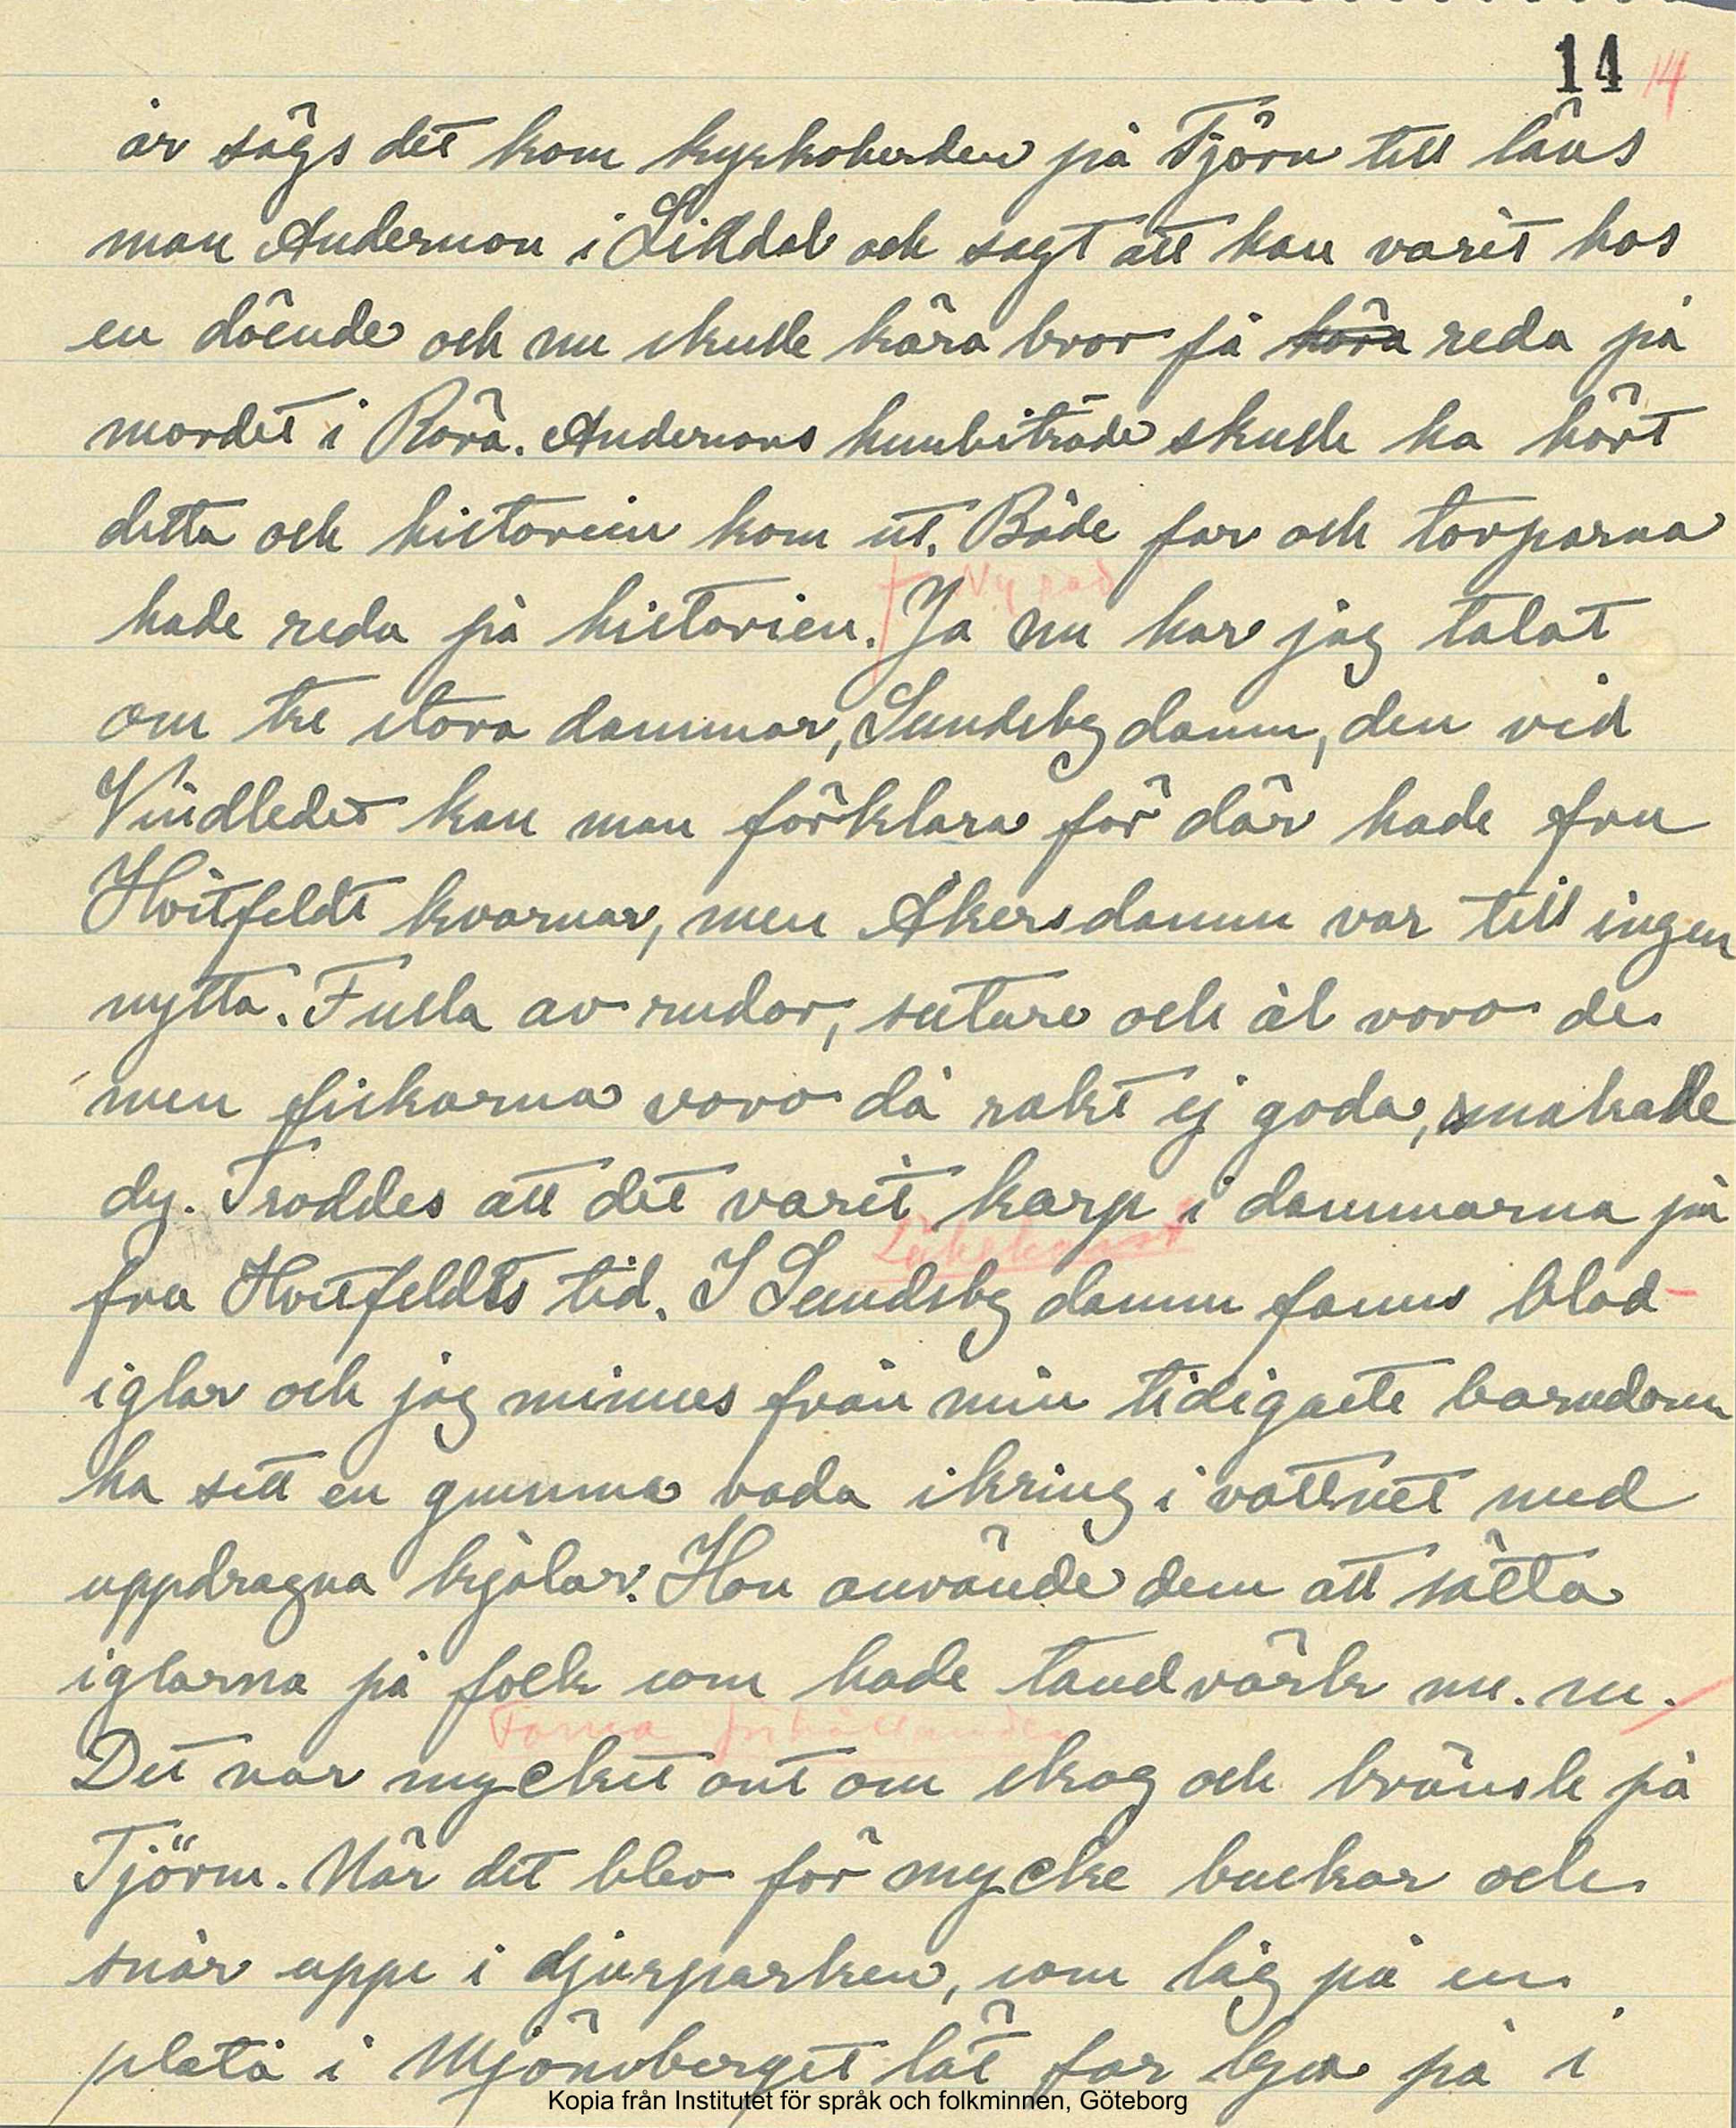 14 14
år sägs det kom kyrkoherden på Tjörn till läns
man Anderson i Lilldal och sagt att han varit hos
en döende och nu skulle kära bror få höra reda på
mordet i Rörå. Andersons hembiträde skulle ha hört
detta och historien kom ut. Både far och torparna
Ny rad
hade reda på historien. Ja nu har jag talat
om tre stora dammar, Sundsby damm, den vid
Vindledet kan man förklara för där hade fru
Hvitfeldt kvarnar, men Åkersdamm var till ingen
nytta. Fulla av rudor, sutare och ål voro de
men fiskarna voro då rakt ej goda, smakade
dy. Troddes att det varit karp i dammarna på
Läkekonst
fru Hvitfeldts tid. I Sundsby damm fanns blod-
iglar och jag minnes från min tidigaste barndom
ha sett en gumma vada ikring i vattnet med
uppdragna kjolar. Hon använde dem att sätta
iglarna på folk som hade tandvärk m. m.
Forna förhållanden
Det var mycket ont om skog och bränsle på
Tjörn. När det blev för mycke buskar och
snår uppe i djurparken, som låg på en
platå i Mjönvberget lät far bjuda på i
Kopia från Institutet för språk och folkminnen, Göteborg